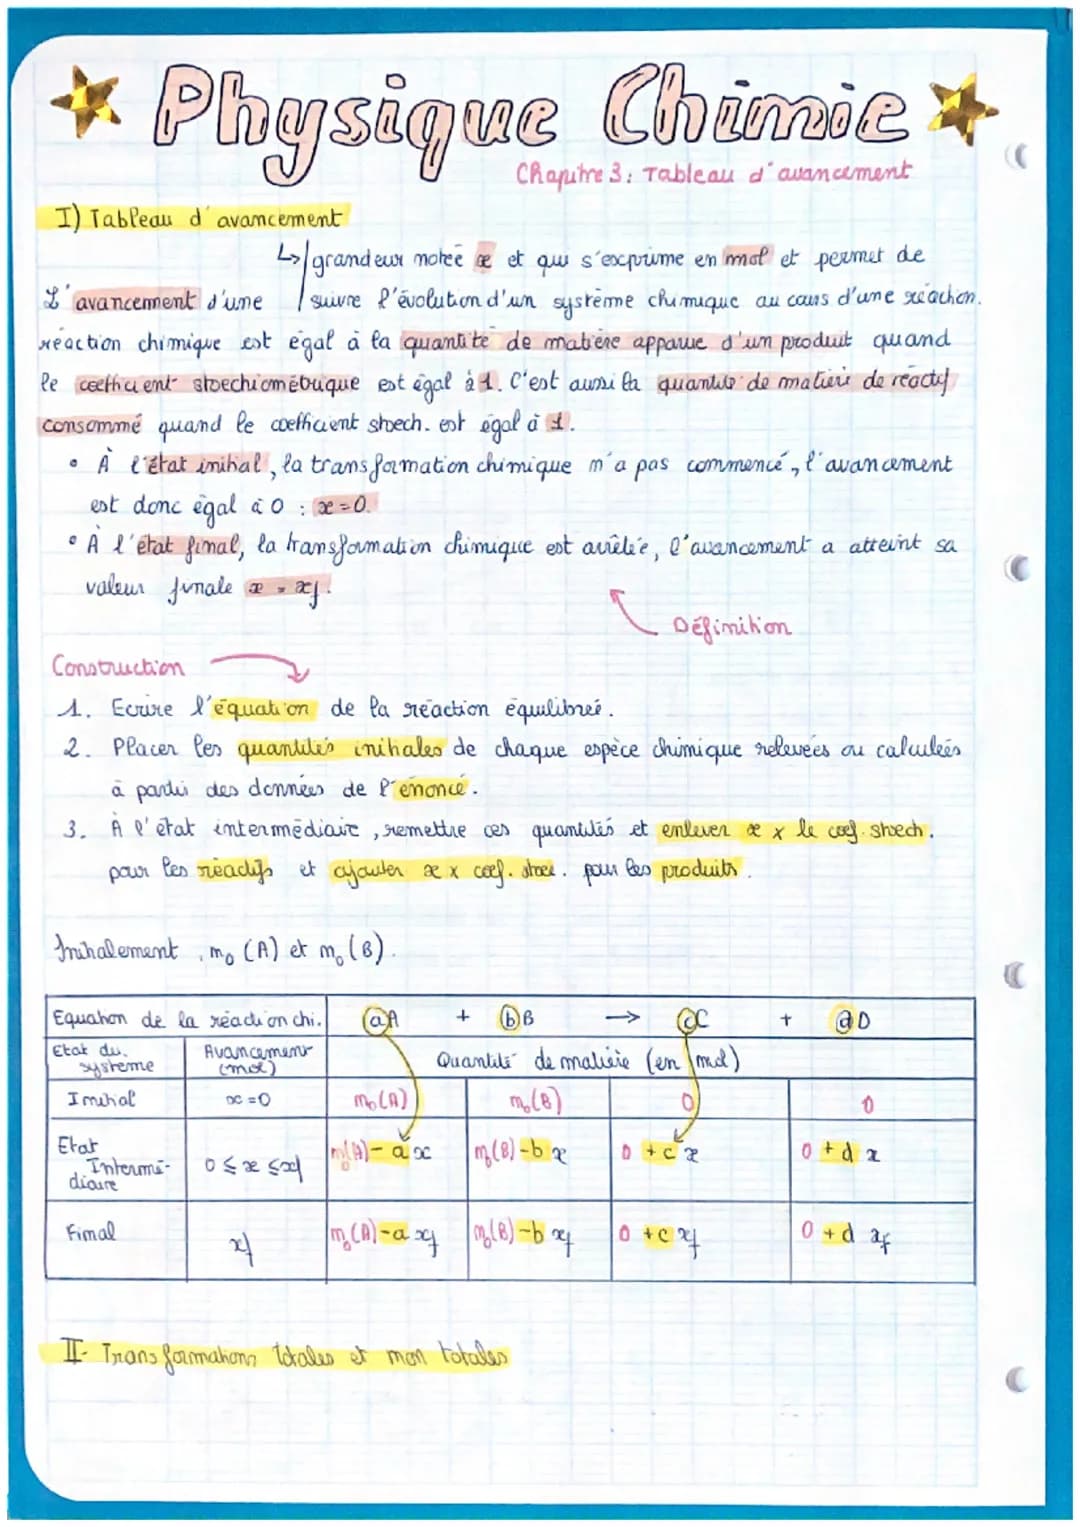 Physique Chimie
Chapitre 3: Tableau d'avancement
I) Tableau d'avancement
↳ grandeur notée x et qui s'exprime en mol et permet de
suivre l'évolution d'un système chimique au cours d'une réaction.
L'avancement d'une
réaction chimique est égal à la quantité de matière apparue d'un produit quand
le coefficient stoechiométrique est égal à 1. C'est aussi la quantité de matière de réactif
consommé quand le coefficient stoech. est égal à 1.
• À l'état initial, la transformation chimique n'a pas commencé, l'avancement
est donc égal à 0 : x = 0.
• À l'état final, la transformation chimique est arrêtée, l'avancement a atteint sa
valeur finale x = xf.
Définition
Construction
1. Ecrire l'équation de la réaction équilibrée.
2. Placer les quantités initiales de chaque espèce chimique relevées ou calculées
à partir des données de l'énoncé.
3. À l'état intermédiaire, remettre ces quantités et enlever x x le coef. stoech.
pour les réactifs et ajouter x x coef. stoe. pour les produits.
Initialement, n₀ (A) et n₀ (B).
Equation de la réaction chi. aA + bB → cC + dD
Etat du système Avancement (mol) Quantité de matière (en mol)
Initial x = 0 n₀(A) n₀(B) 0 0
Etat Intermé-diaire 0 ≤ x ≤ xf n₀(A) - a x n₀(B) - b x 0 + c x 0 + d x
Final xf n₀(A) - a xf n₀(B) - b xf 0 + c xf 0 + d xf
II- Transformations totales et non totales